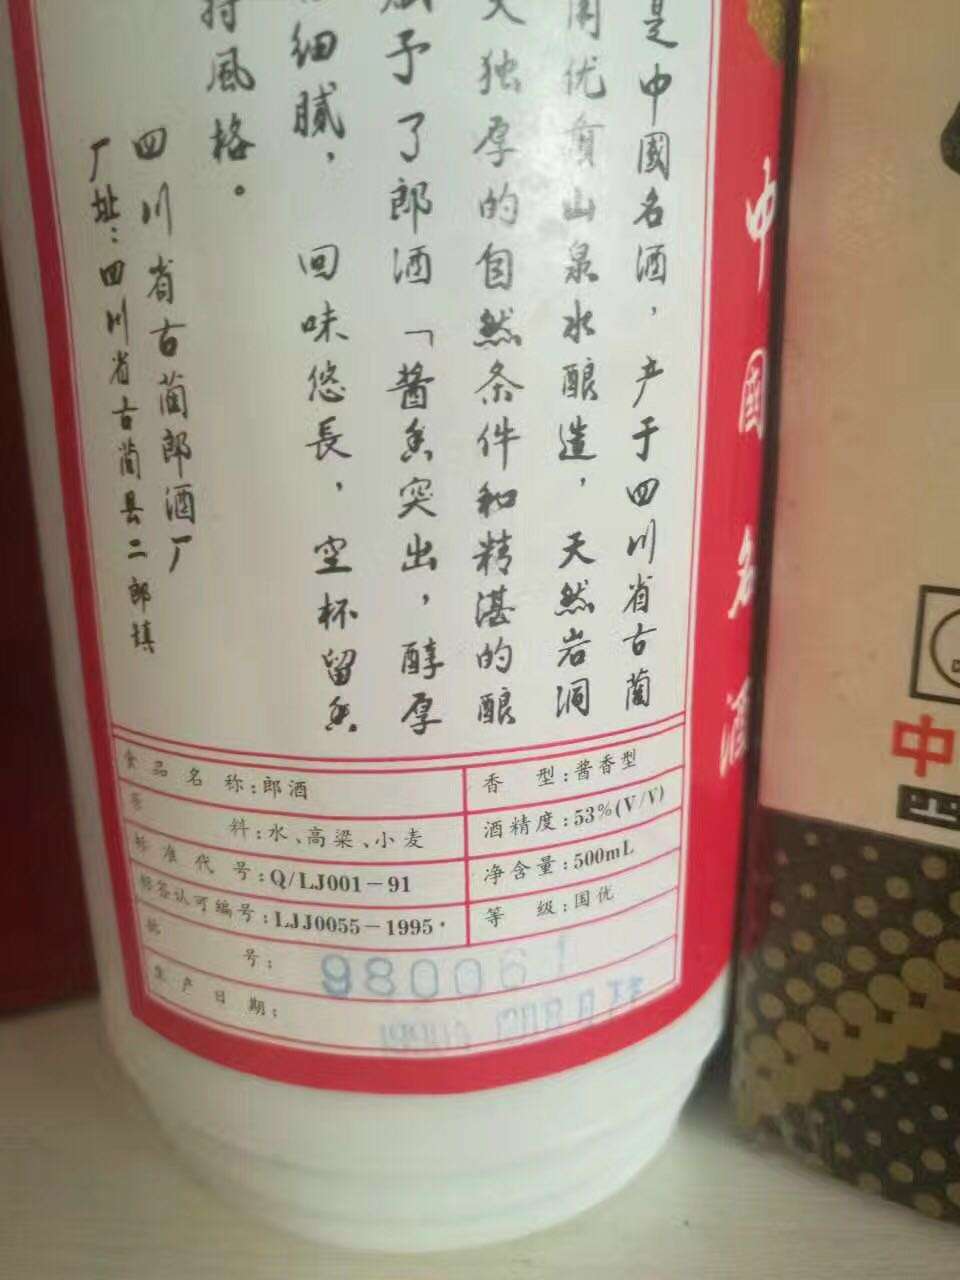 是中國名酒，产于四川省古蔺
优质山泉水酿造，天然岩洞
独孕的自然条件和精湛的酿
予了郎酒「酱香突出，醇厚
细腻，回味悠長，空杯留香
風格。
四川省古蔺郎酒厂
厂址：四川省古蔺县二郎镇
食品名称：郎酒
香型：酱香型
料：水、高粱、小麦
酒精度：53%(V/V)
标准代号：Q/LJ001-91
净含量：500mL
标签认可编号：LJJ0055-1995
等级：国优
批号：980061
生产日期：
中國名酒
中